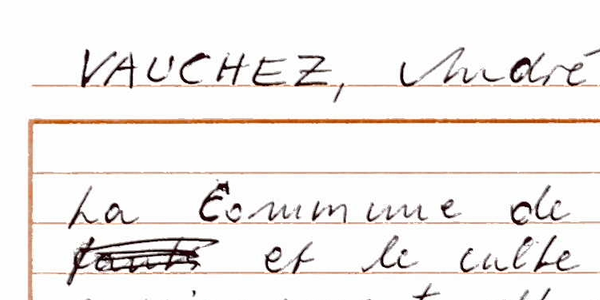 VAUCHEZ, André
La Commune de
et le culte